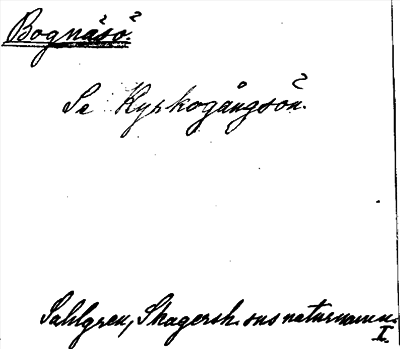 Bognäsö?
Se Kyrkogångsön?
Sahlgren, Skagersh. sns naturnamn.
I.